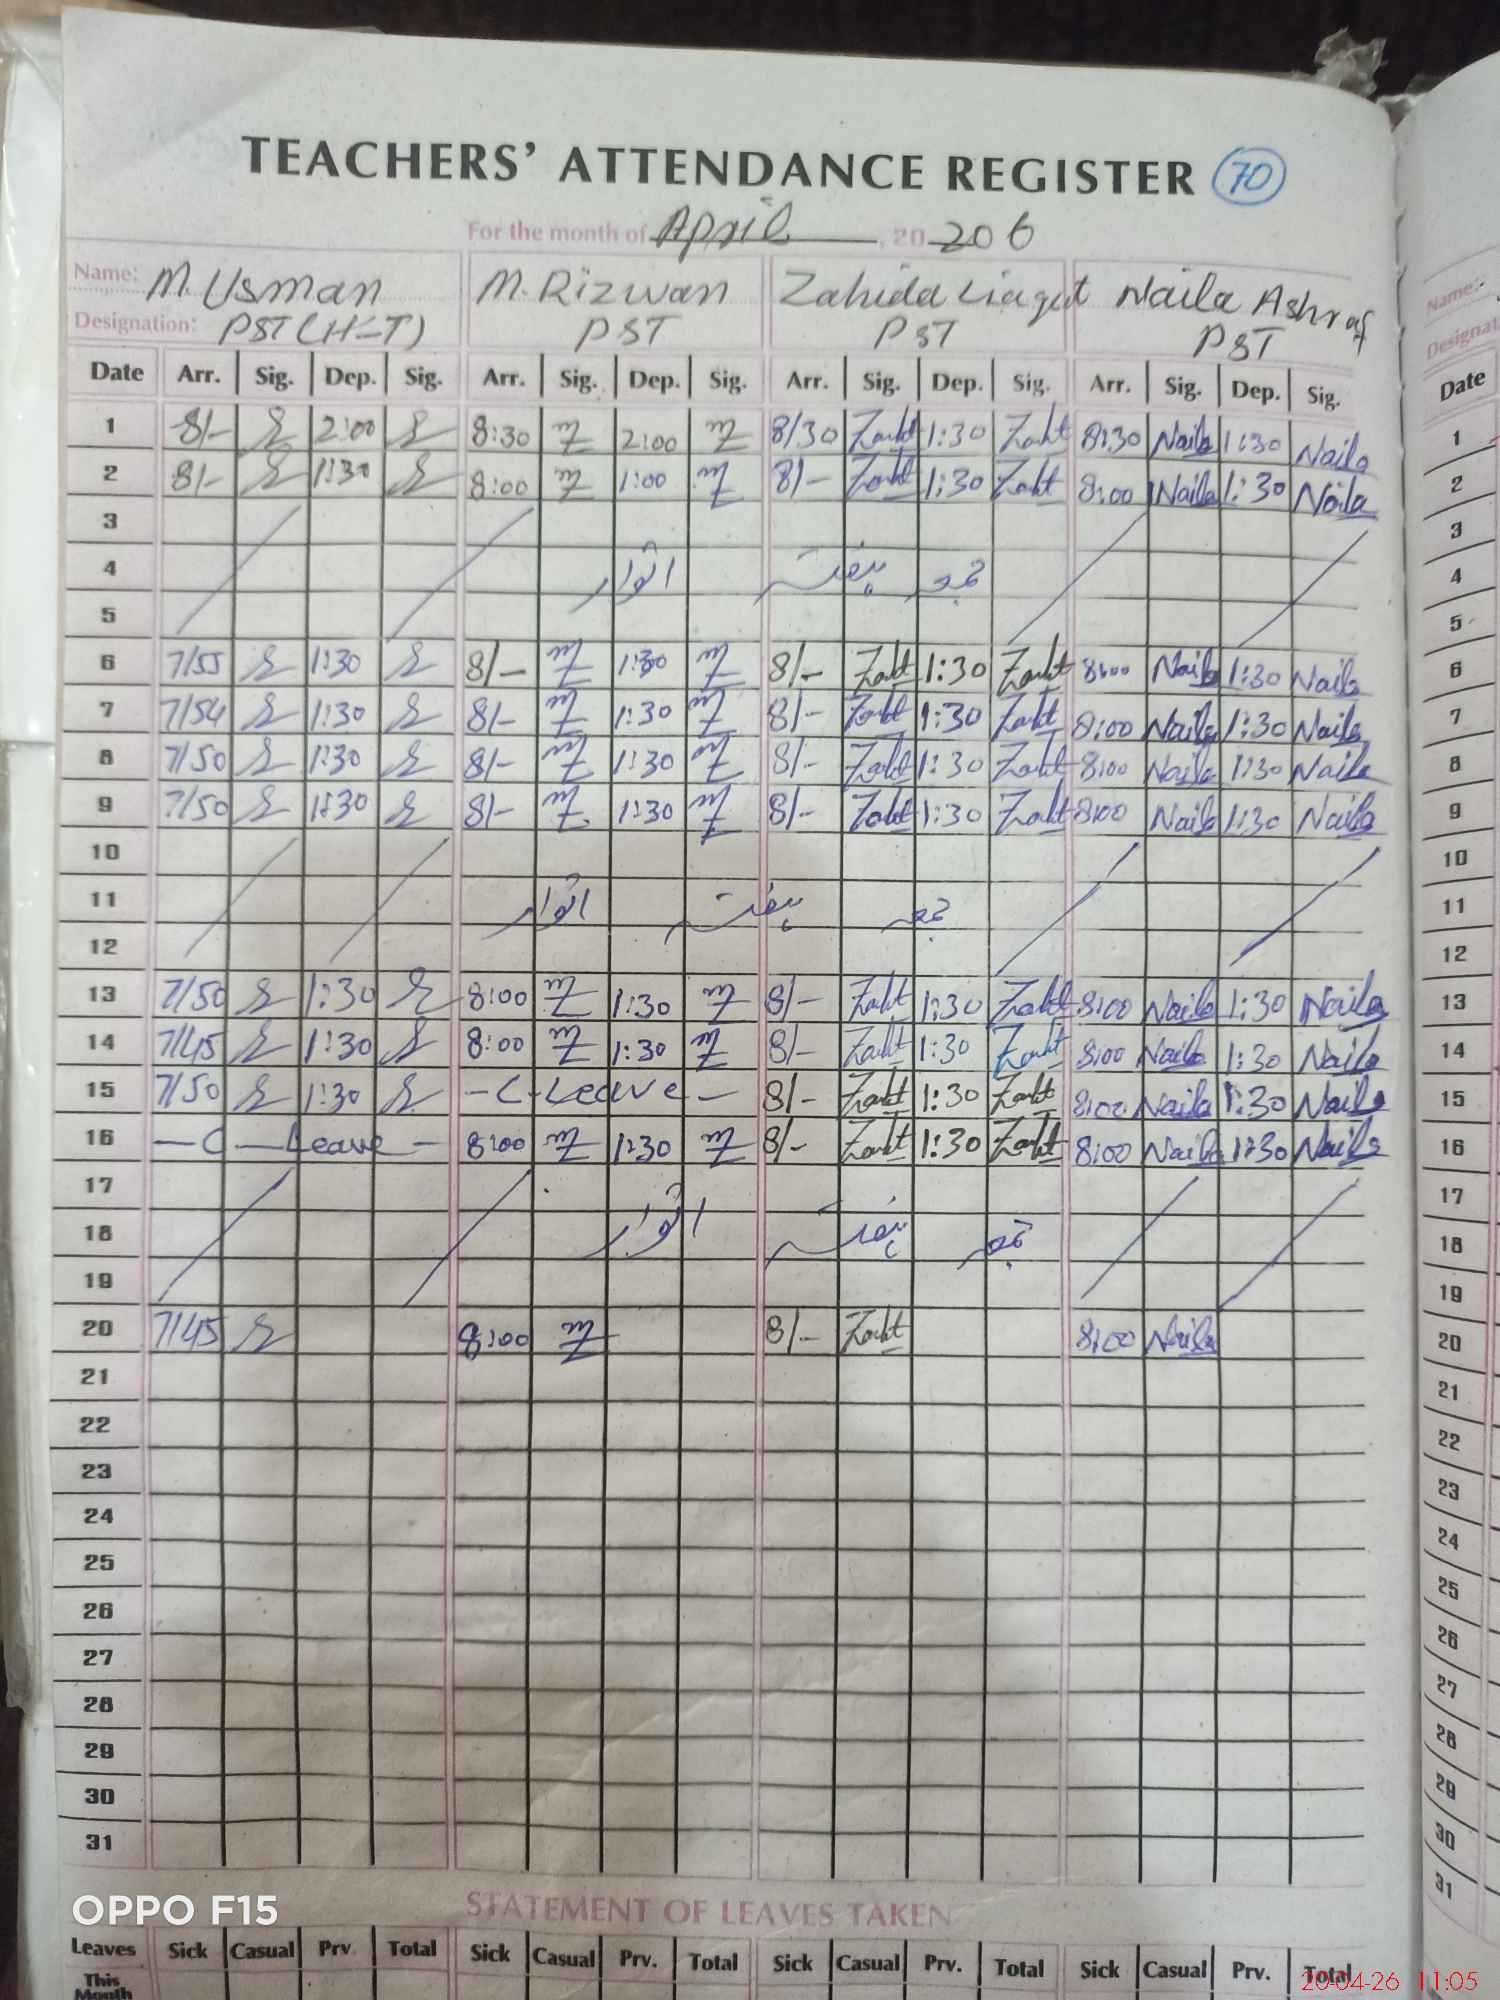 TEACHERS' ATTENDANCE REGISTER 70
For the month of April, 20 206
Name: M. Usman M. Rizwan Zahida Liaqat Naila Ashraf Name:
Designation: PST (H-T) PST PST PST
Date Arr. Sig. Dep. Sig. Arr. Sig. Dep. Sig. Arr. Sig. Dep. Sig. Arr. Sig. Dep. Sig. Date
1 8/- 2:00 8:30 2:00 8/30 1:30 8:30 Naila 1:30 Naila 1
2 8/- 1:30 8:00 1:00 8/- 1:30 8:00 Naila 1:30 Naila 2
3 3
4 جمعہ ہفتہ اتوار 4
5 5
6 7/55 1:30 8/- 1:30 8/- 1:30 8:00 Naila 1:30 Naila 6
7 7/54 1:30 8/- 1:30 8/- 1:30 8:00 Naila 1:30 Naila 7
8 7/50 1:30 8/- 1:30 8/- 1:30 8:00 Naila 1:30 Naila 8
9 7/50 1:30 8/- 1:30 8/- 1:30 8:00 Naila 1:30 Naila 9
10 10
11 جمعہ ہفتہ اتوار 11
12 12
13 7/50 1:30 8:00 1:30 8/- 1:30 8:00 Naila 1:30 Naila 13
14 7/45 1:30 8:00 1:30 8/- 1:30 8:00 Naila 1:30 Naila 14
15 7/50 1:30 -C-Leave- 8/- 1:30 8:00 Naila 1:30 Naila 15
16 -C-Leave- 8:00 1:30 8/- 1:30 8:00 Naila 1:30 Naila 16
17 17
18 جمعہ ہفتہ اتوار 18
19 19
20 7/45 8:00 8/- 8:00 Naila 20
21 21
22 22
23 23
24 24
25 25
26 26
27 27
28 28
29 29
30 30
31 31
STATEMENT OF LEAVES TAKEN
Leaves Sick Casual Prv. Total Sick Casual Prv. Total Sick Casual Prv. Total Sick Casual Prv. Total
This Month
OPPO F15
20-04-26 11:05